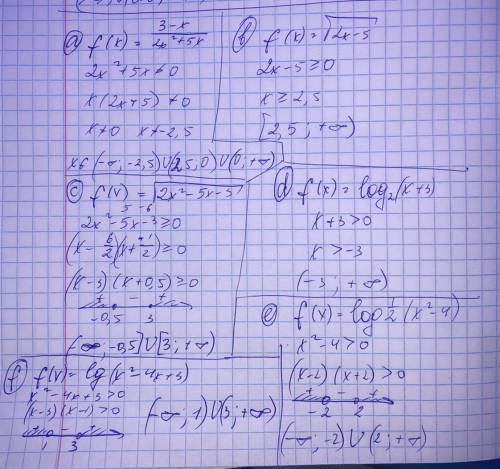 a) f(x) = 3-x / 2x²+5x
2x²+5x≠0
x(2x+5)≠0
x≠0 x≠-2,5
x∈(-∞;-2,5)∪(2,5;0)∪(0;+∞)
b) f(x) = √2x-5
2x-5≥0
x≥2,5
[2,5;+∞)
c) f(x) = √2x²-5x-5
5 -6
2x²-5x-3≥0
(x-6/2)(x+1/2)≥0
(x-3)(x+0,5)≥0
+ - +
-0,5 3
(-∞;-0,5]∪[3;+∞)
d) f(x) = log₂(x+3)
x+3>0
x>-3
(-3;+∞)
e) f(x) = log 1/2 (x²-4)
x²-4>0
(x-2)(x+2)>0
+ - +
-2 2
(-∞;-2)∪(2;+∞)
f) f(x) = lg(x²-4x+3)
x²-4x+3>0
(x-3)(x-1)>0
+ - +
1 3
(-∞;1)∪(3;+∞)